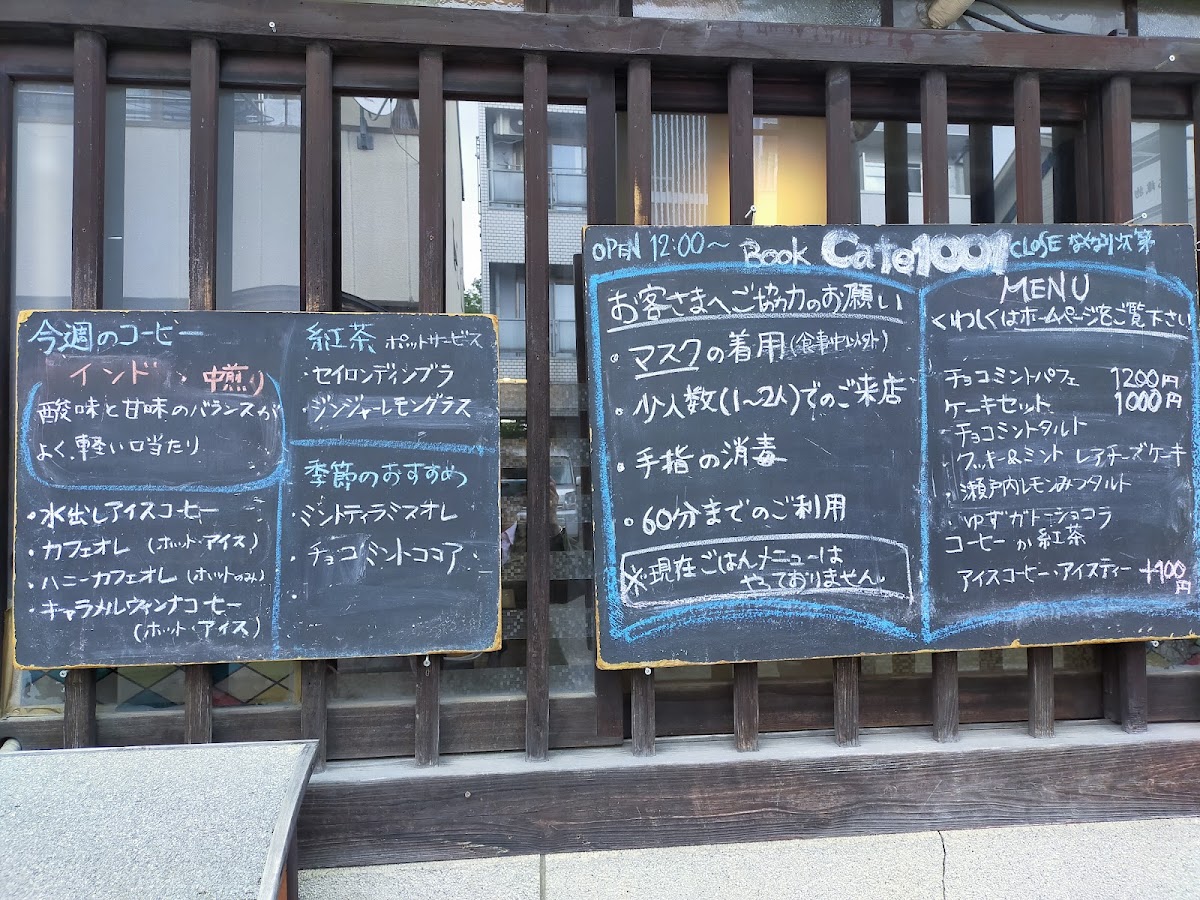 今週のコーヒー
インド・中煎り
酸味と甘味のバランスが
よく、軽い口当たり
・水出しアイスコーヒー
・カフェオレ (ホット・アイス)
・ハニーカフェオレ (ホットのみ)
・キャラメルウィンナコーヒー
(ホット・アイス)
紅茶 ポットサービス
・セイロンディンブラ
・ジンジャーレモングラス
季節のおすすめ
・ミントティラミスオレ
・チョコミントココア
OPEN 12:00〜 Book Cafe1001 CLOSE なくなり次第
お客さまへご協力のお願い
・マスクの着用(食事中以外)
・少人数(1〜2人)でのご来店
・手指の消毒
・60分までのご利用
※現在ごはんメニューは
やっておりません。
MENU
くわしくはホームページをご覧下さい
チョコミントパフェ 1200円
ケーキセット 1000円
・チョコミントタルト
・クッキー&ミント レアチーズケーキ
・瀬戸内レモンみつタルト
・ゆずガトーショコラ
コーヒーか紅茶
アイスコーヒー・アイスティー +100円